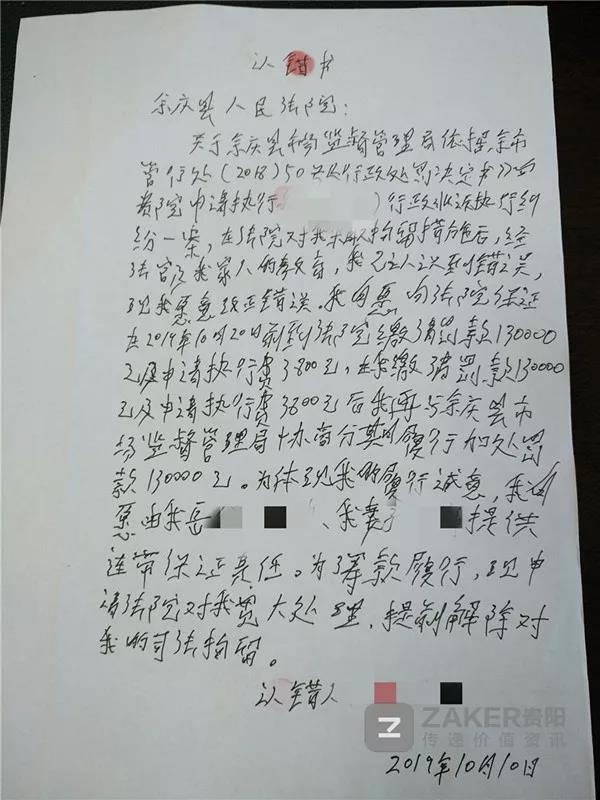 认错书
余庆县人民法院：
关于余庆县市场监督管理局依据余市
管行处(2018)50号行政处罚决定书向
贵院申请执行 )行政非诉执行纠
纷一案，在法院对我采取拘留措施后，经
法官及我家人的教育，我已经认识到错误，
现我愿意改正错误。我自愿向法院保证
在2019年10月20日前到法院缴清罚款130000
元及申请执行费3800元，在我缴清罚款130000
元及申请执行费3800元后我再与余庆县市
场监督管理局协商分期履行加处罚
款130000元。为体现我的履行诚意，我自
愿由我岳 、我妻 提供
连带保证责任。为筹款履行，现申
请法院对我宽大处理，提前解除对
我的司法拘留。
认错人
2019年10月10日
ZAKER贵阳
传递价值资讯